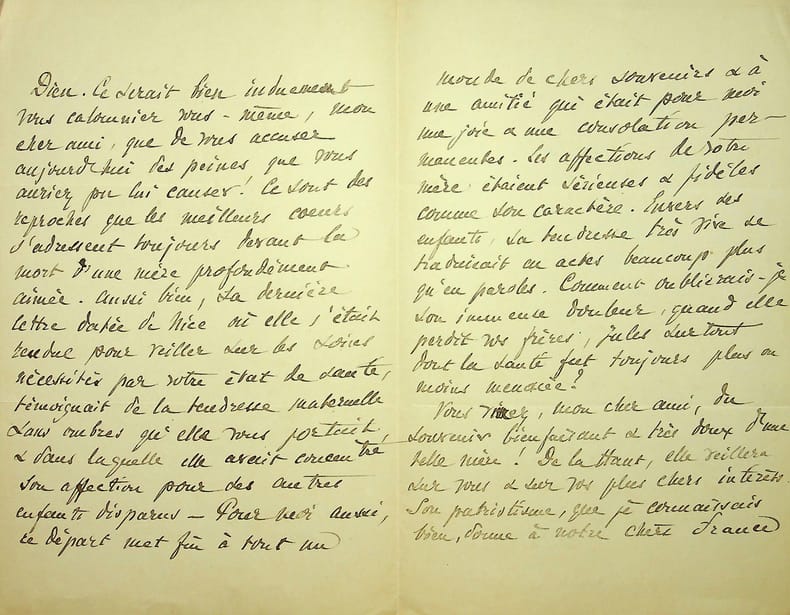 Dieu. Ce serait bien indûment
vous calomnier vous-même, mon
cher ami, que de vous accuser
aujourd'hui des peines que vous
auriez pu lui causer! Ce sont des
reproches que les meilleurs coeurs
s'adressent toujours devant la
mort d'une mère profondément
aimée. Aussi bien, sa dernière
lettre datée de Nice où elle s'était
rendue pour veiller sur les soins
nécessités par votre état de santé,
témoignait de la tendresse maternelle
sans ombres qu'elle vous portait,
& dans laquelle elle avait concentré
son affection pour des autres
enfants disparus — Pour moi aussi,
ce départ met fin à tout un
monde de chers souvenirs & à
une amitié qui était pour moi
une joie & une consolation per-
manentes. Les affections de votre
mère étaient sérieuses & fidèles
comme son caractère. Envers ses
enfants, sa tendresse très vive se
traduisait en actes beaucoup plus
qu'en paroles. Comment oublierais-je
son immense douleur, quand elle
perdit vos frères, Jules surtout
dont la santé fut toujours plus ou
moins menacée?
Vous, mon cher ami, du
souvenir bienfaisant & très doux d'une
telle mère! De là Haut, elle veillera
sur vous & sur vos plus chers intérêts.
Son patriotisme, que je connaissais
bien, donne à notre chère France